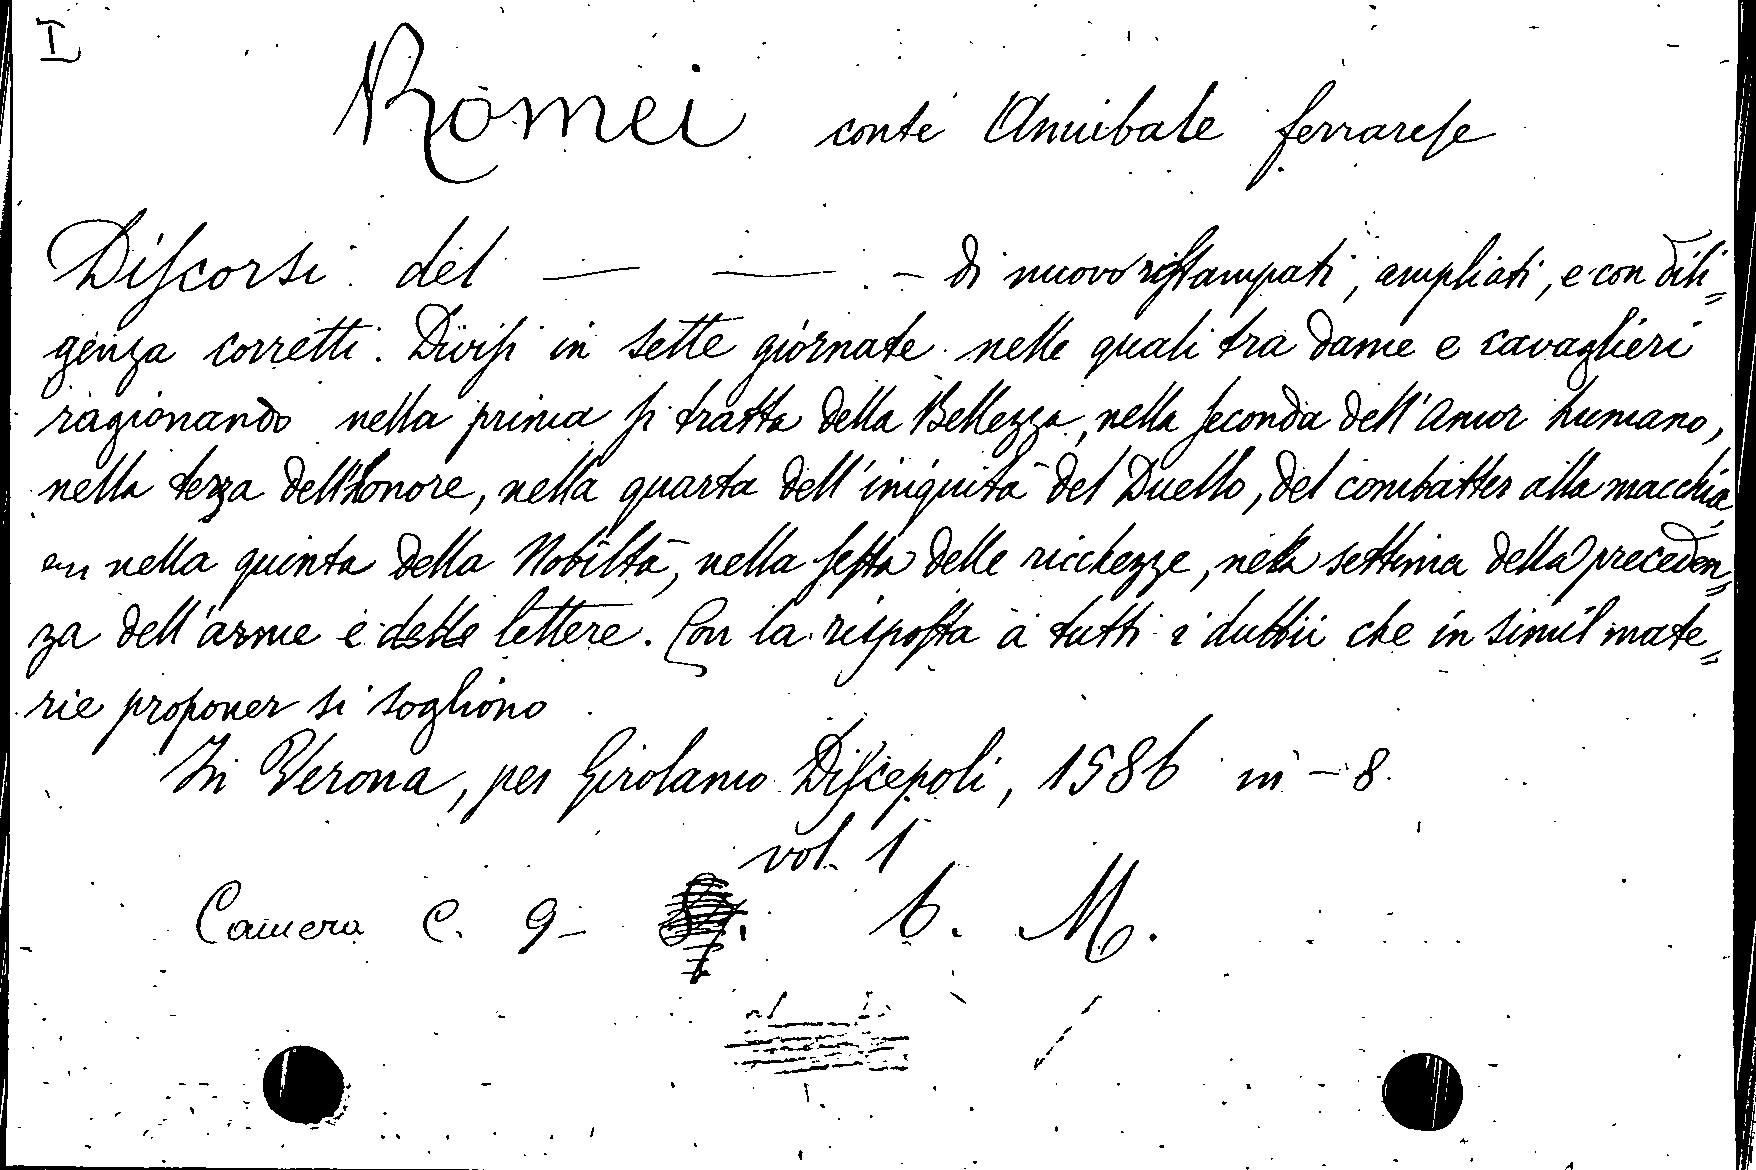 I
Romei conte Annibale ferrarese
Discorsi del — — - di nuovo ristampati, ampliati, e con dili=
genza corretti. Divisi in sette giornate nelle quali tra dame e cavaglieri
ragionando nella prima si tratta della Bellezza, nella seconda dell'Amor humano,
nella terza dell'honore, nella quarta dell'iniquità del Duello, del combatter alla macchia,
nella quinta della Nobiltà, nella sesta delle ricchezze, nella settima della preceden=
za dell'arme e delle lettere. Con la risposta à tutti i dubbii che in simil mate=
rie proponer si sogliono
In Verona, per Girolamo Discepoli, 1586 in - 8.
vol. 1
Camera C. 9- 6. M.